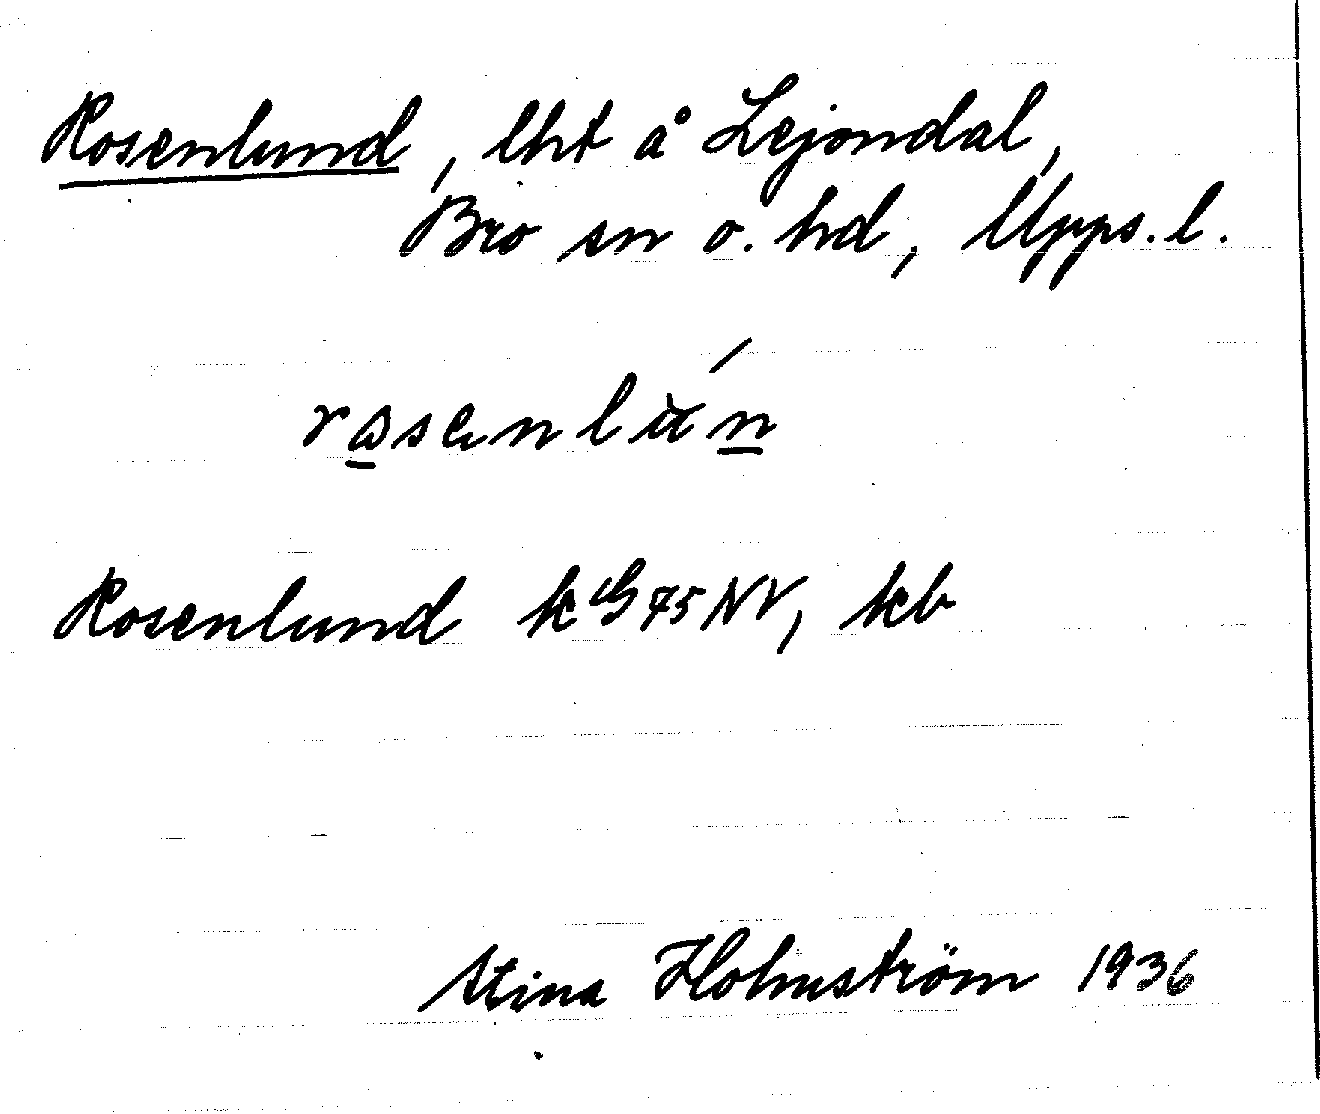 Rosenlund, lht å Lejondal,
Bro sn o. hd, Upps. l.
Rosenlund k G 75 NV, kb
Stina Holmström 1936